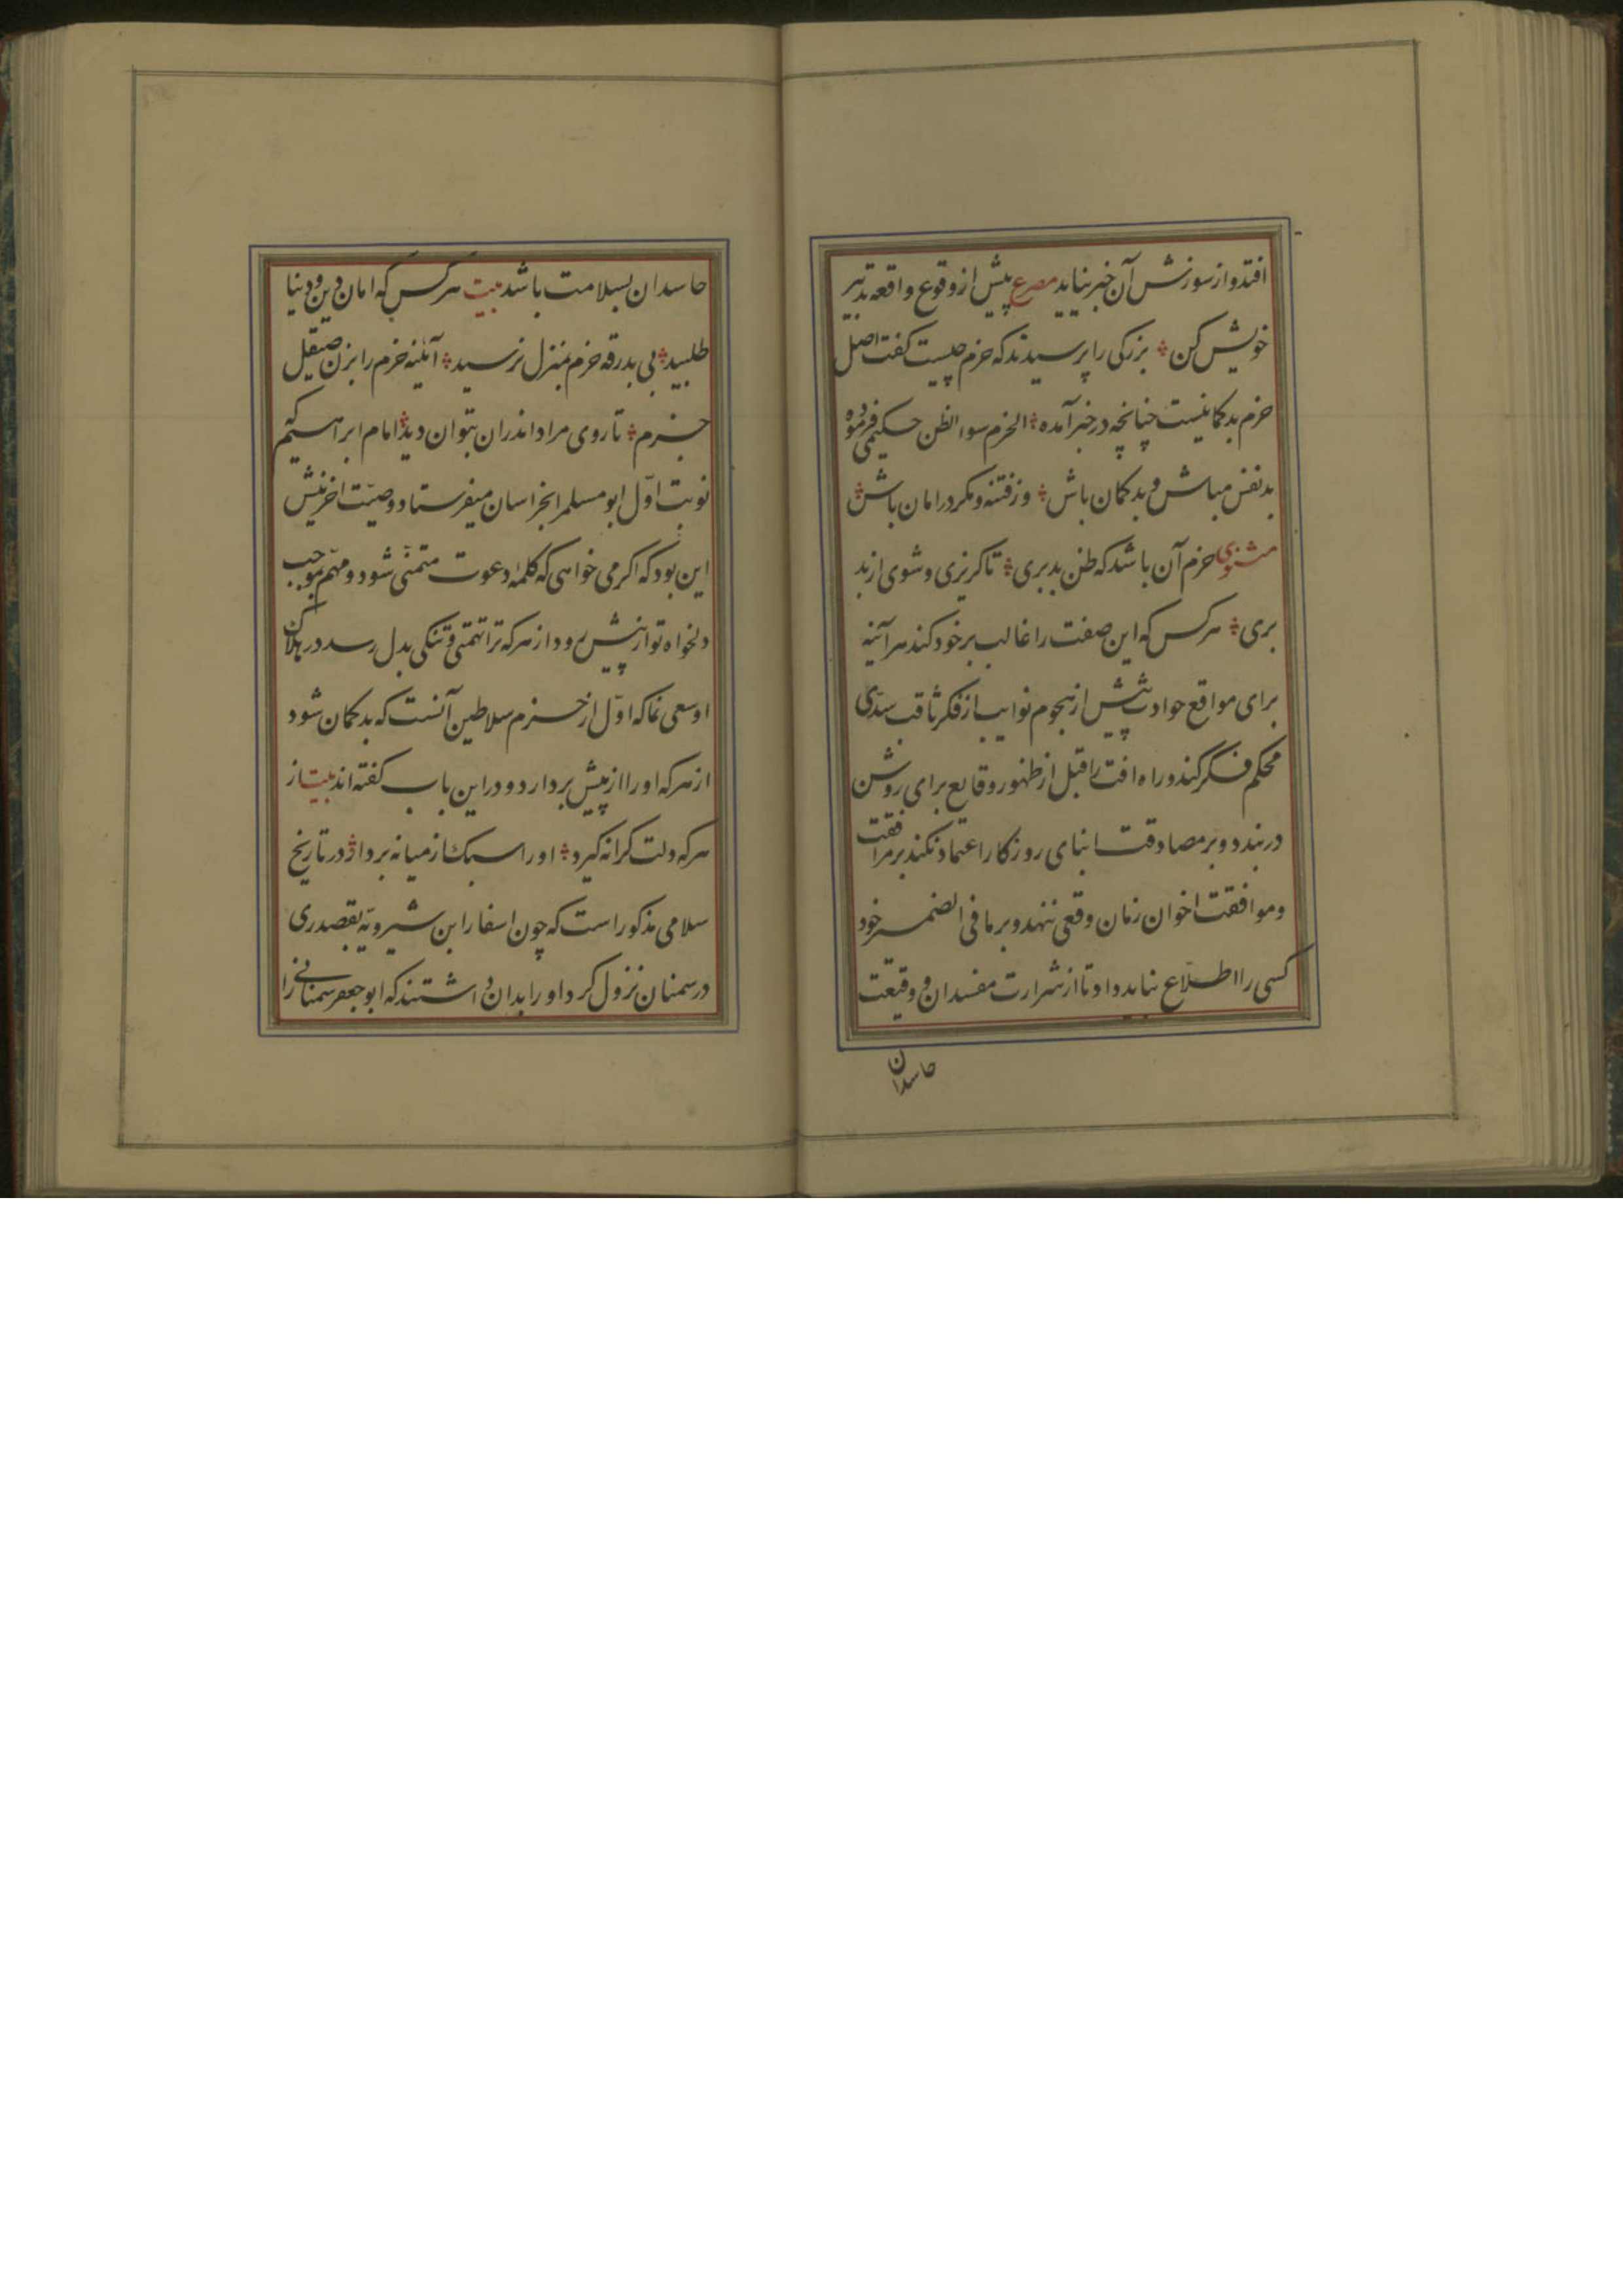 افتد و از سوزش آن خبر نیابد مصرع پیش از وقوع واقعه تدبیر
خویش کن بزرکی را پرسیدند که حزم چیست کفت اصل
حزم بدکمانیست چنانچه در خبر آمده الحزم سوء الظن حکیمی فرموده
بدنفس مباش و بدکمان باش وز فتنه و مکر در امان باش
مثنوی حزم آن باشد که ظن بد بری تا کریزی و شوی از بد
بری هر کس که این صفت را غالب بر خود کند هر آئینه
برای مواقع حوادث پیش از هجوم نوایب از فکر ثاقب سدّی
محکم فکر کند و راه افت را قبل از ظهور وقایع برای روشن
در بندد و بر مصادقت ابنای روزکار اعتماد نکند بر مرافقت
و موافقت اخوان زمان وقعی ننهد و بر ما فی الضمیر خود
کسی را اطلاع نباید داد تا از شرارت مفسدان و وقیعت
حاسدان
حاسدان بسلامت باشد بیت هر کس که امان دین و دنیا
طلبید بی بدرقه حزم بمنزل نرسید آئینه حزم را بزن صیقل
جزم تا روی مراد اندران بتوان دید امام ابراهیم
نوبت اوّل ابو مسلم را بخراسان میفرستاد وصیّت اخرینش
این بود که اکر می خواهی که کلمهٔ دعوت متمشّی شود و مهم بموجب
دلخواه تو از پیش رود از هر که ترا تهمتی و شکی بدل رسد در هلاک
او سعی نما که اوّل از حزم سلاطین آنست که بدکمان شود
از هر که او را از پیش بردارد و در این باب کفته اند بیت از
هر که دلت کرانه کیرد او را سبک از میانه بردار در تاریخ
سلامی مذکور است که چون اسفار ابن شیرویه بقصد ری
در سمنان نزول کرد او را بدان داشتند که ابو جعفر سمنانی را